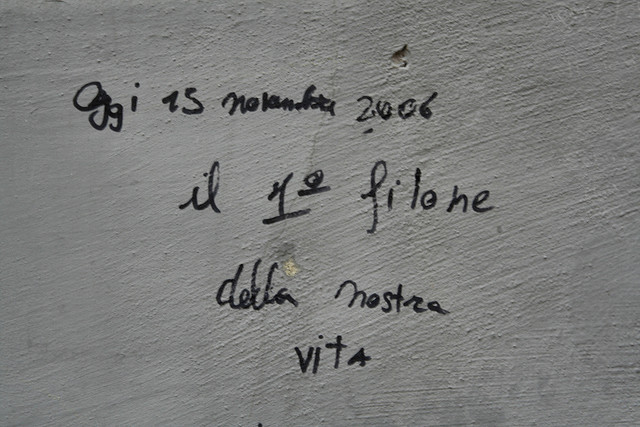 Oggi 15 novembre 2006
il 1º filone
della nostra
vita